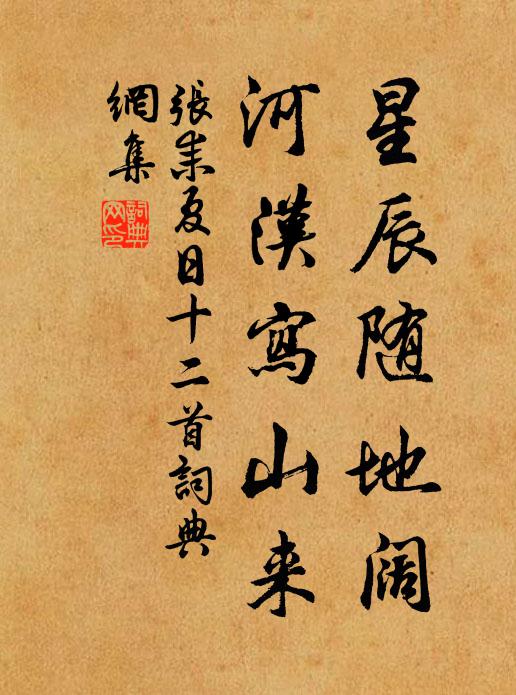 星辰随地阔
河漢寫山来
張耒夏日十二首詞典
網集
詞典網印